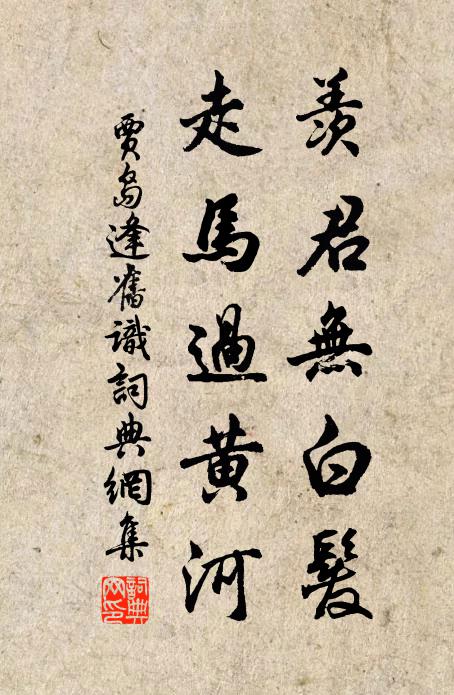 羨君無白髮
走馬過黃河
賈島逢舊識詞典網集
詞典網印